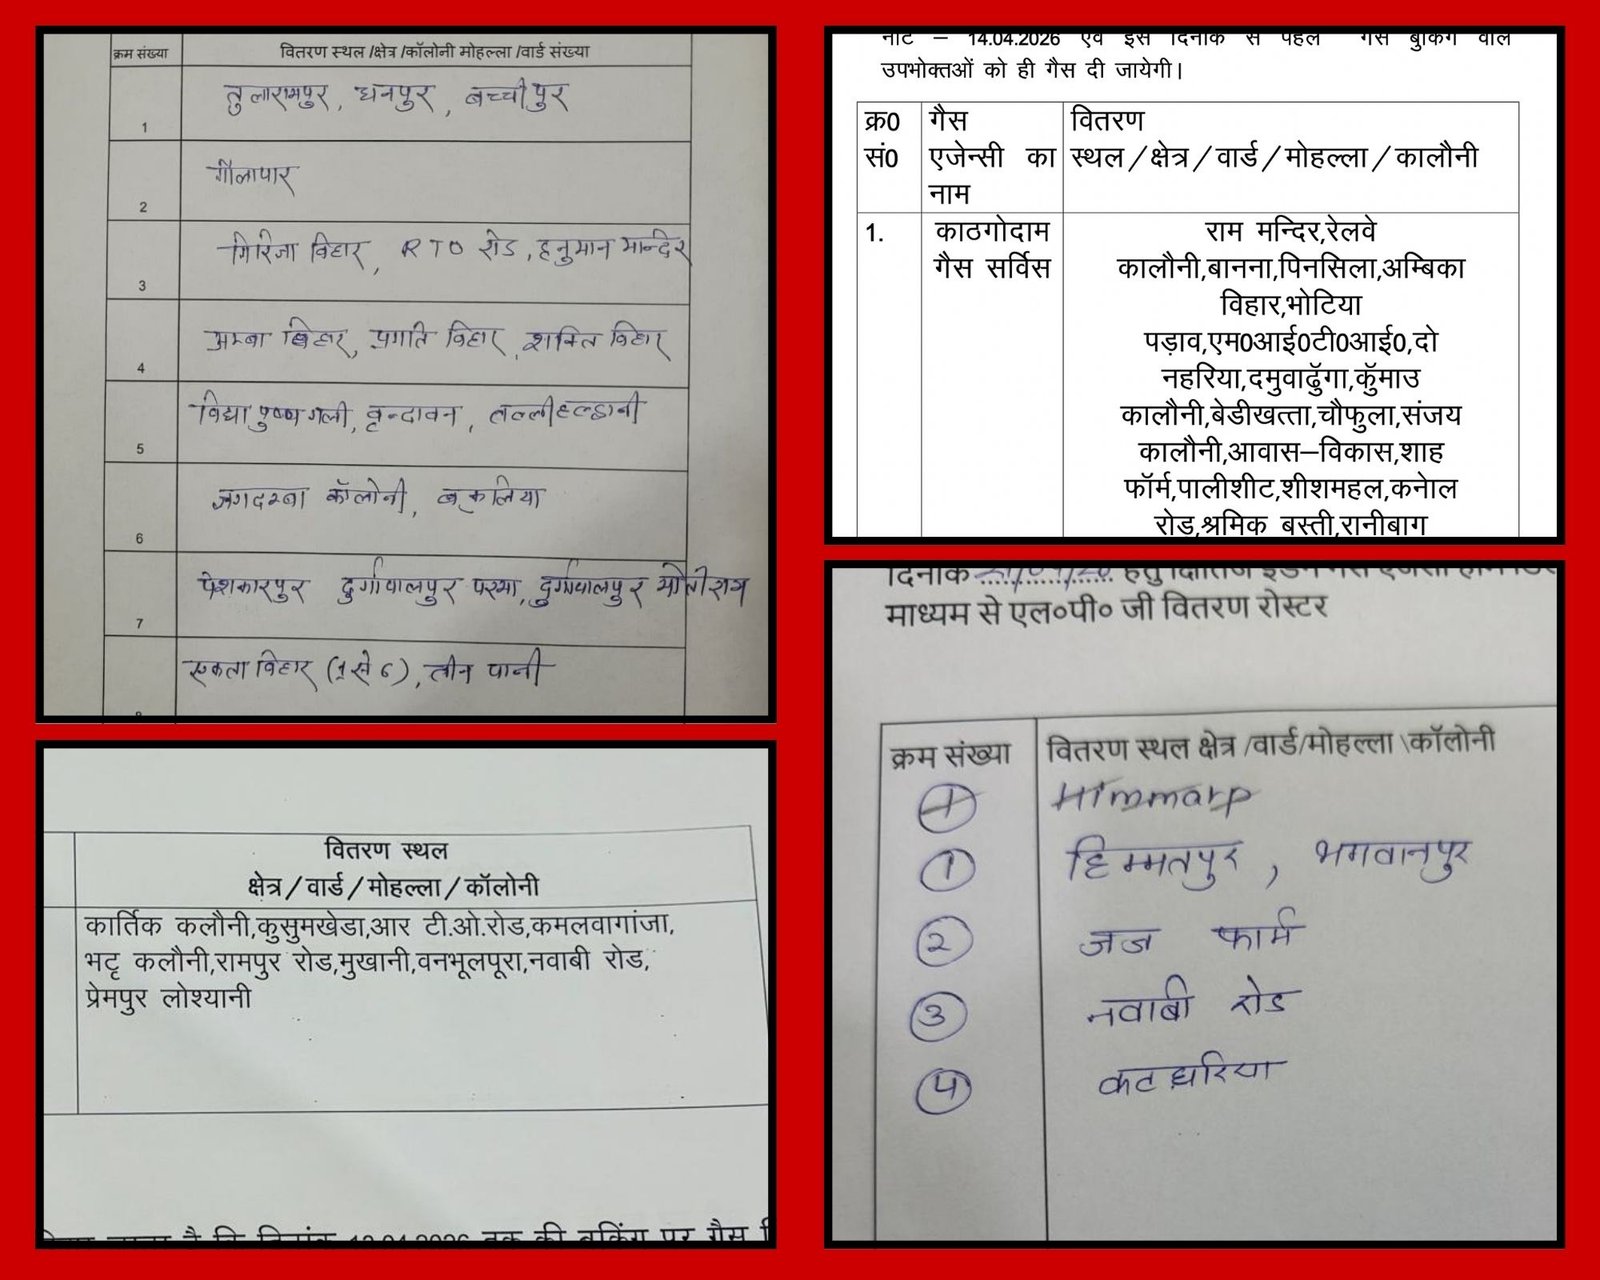 क्रम संख्या वितरण स्थल /क्षेत्र /कॉलोनी मोहल्ला /वार्ड संख्या
1 तुलारामपुर, धनपुर, बच्चीपुर
2 गौलापार
3 गिरिजा विहार, RTO रोड, हनुमान मान्दिर
4 अम्बा विहार, प्रगति विहार, शक्ति विहार
5 विद्या पुष्प गली, वृन्दावन, तल्लीहल्द्वानी
6 जगदम्बा कॉलोनी, बकुलिया
7 पेशकारपुर दुर्गापालपुर परमा, दुर्गापालपुर मोतीराम
एकता विहार (1 से 6), तीन पानी
वितरण स्थल
क्षेत्र/वार्ड/मोहल्ला/कॉलोनी
कार्तिक कलौनी,कुसुमखेडा,आर टी.ओ.रोड,कमलवागांजा,
भटृ कलौनी,रामपुर रोड,मुखानी,वनभूलपूरा,नवाबी रोड,
प्रेमपुर लोश्यानी
है कि दिनांक 13.04.2026 तक की बुकिंग पर गैस
नोट – 14.04.2026 एवं इस दिनांक से पहले गैस बुकिंग वाले
उपभोक्ताओं को ही गैस दी जायेगी।
क्र0 गैस वितरण
सं0 एजेन्सी का स्थल/क्षेत्र/वार्ड/मोहल्ला/कालौनी
नाम
1. काठगोदाम राम मन्दिर,रेलवे
गैस सर्विस कालौनी,बानना,पिनसिला,अम्बिका
विहार,भोटिया
पड़ाव,एम0आई0टी0आई0,दो
नहरिया,दमुवाढुॅगा,कुॅमाउ
कालौनी,बेडीखत्ता,चौफुला,संजय
कालौनी,आवास–विकास,शाह
फॉर्म,पालीशीट,शीशमहल,कनेाल
रोड,श्रमिक बस्ती,रानीबाग
दिनांक हेतु
माध्यम से एल०पी० जी वितरण रोस्टर
क्रम संख्या वितरण स्थल क्षेत्र /वार्ड/मोहल्ला \कॉलोनी
1 Himmarp
1 हिम्मतपुर, भगवानपुर
2 जज फार्म
3 नवाबी रोड
4 कटघरिया